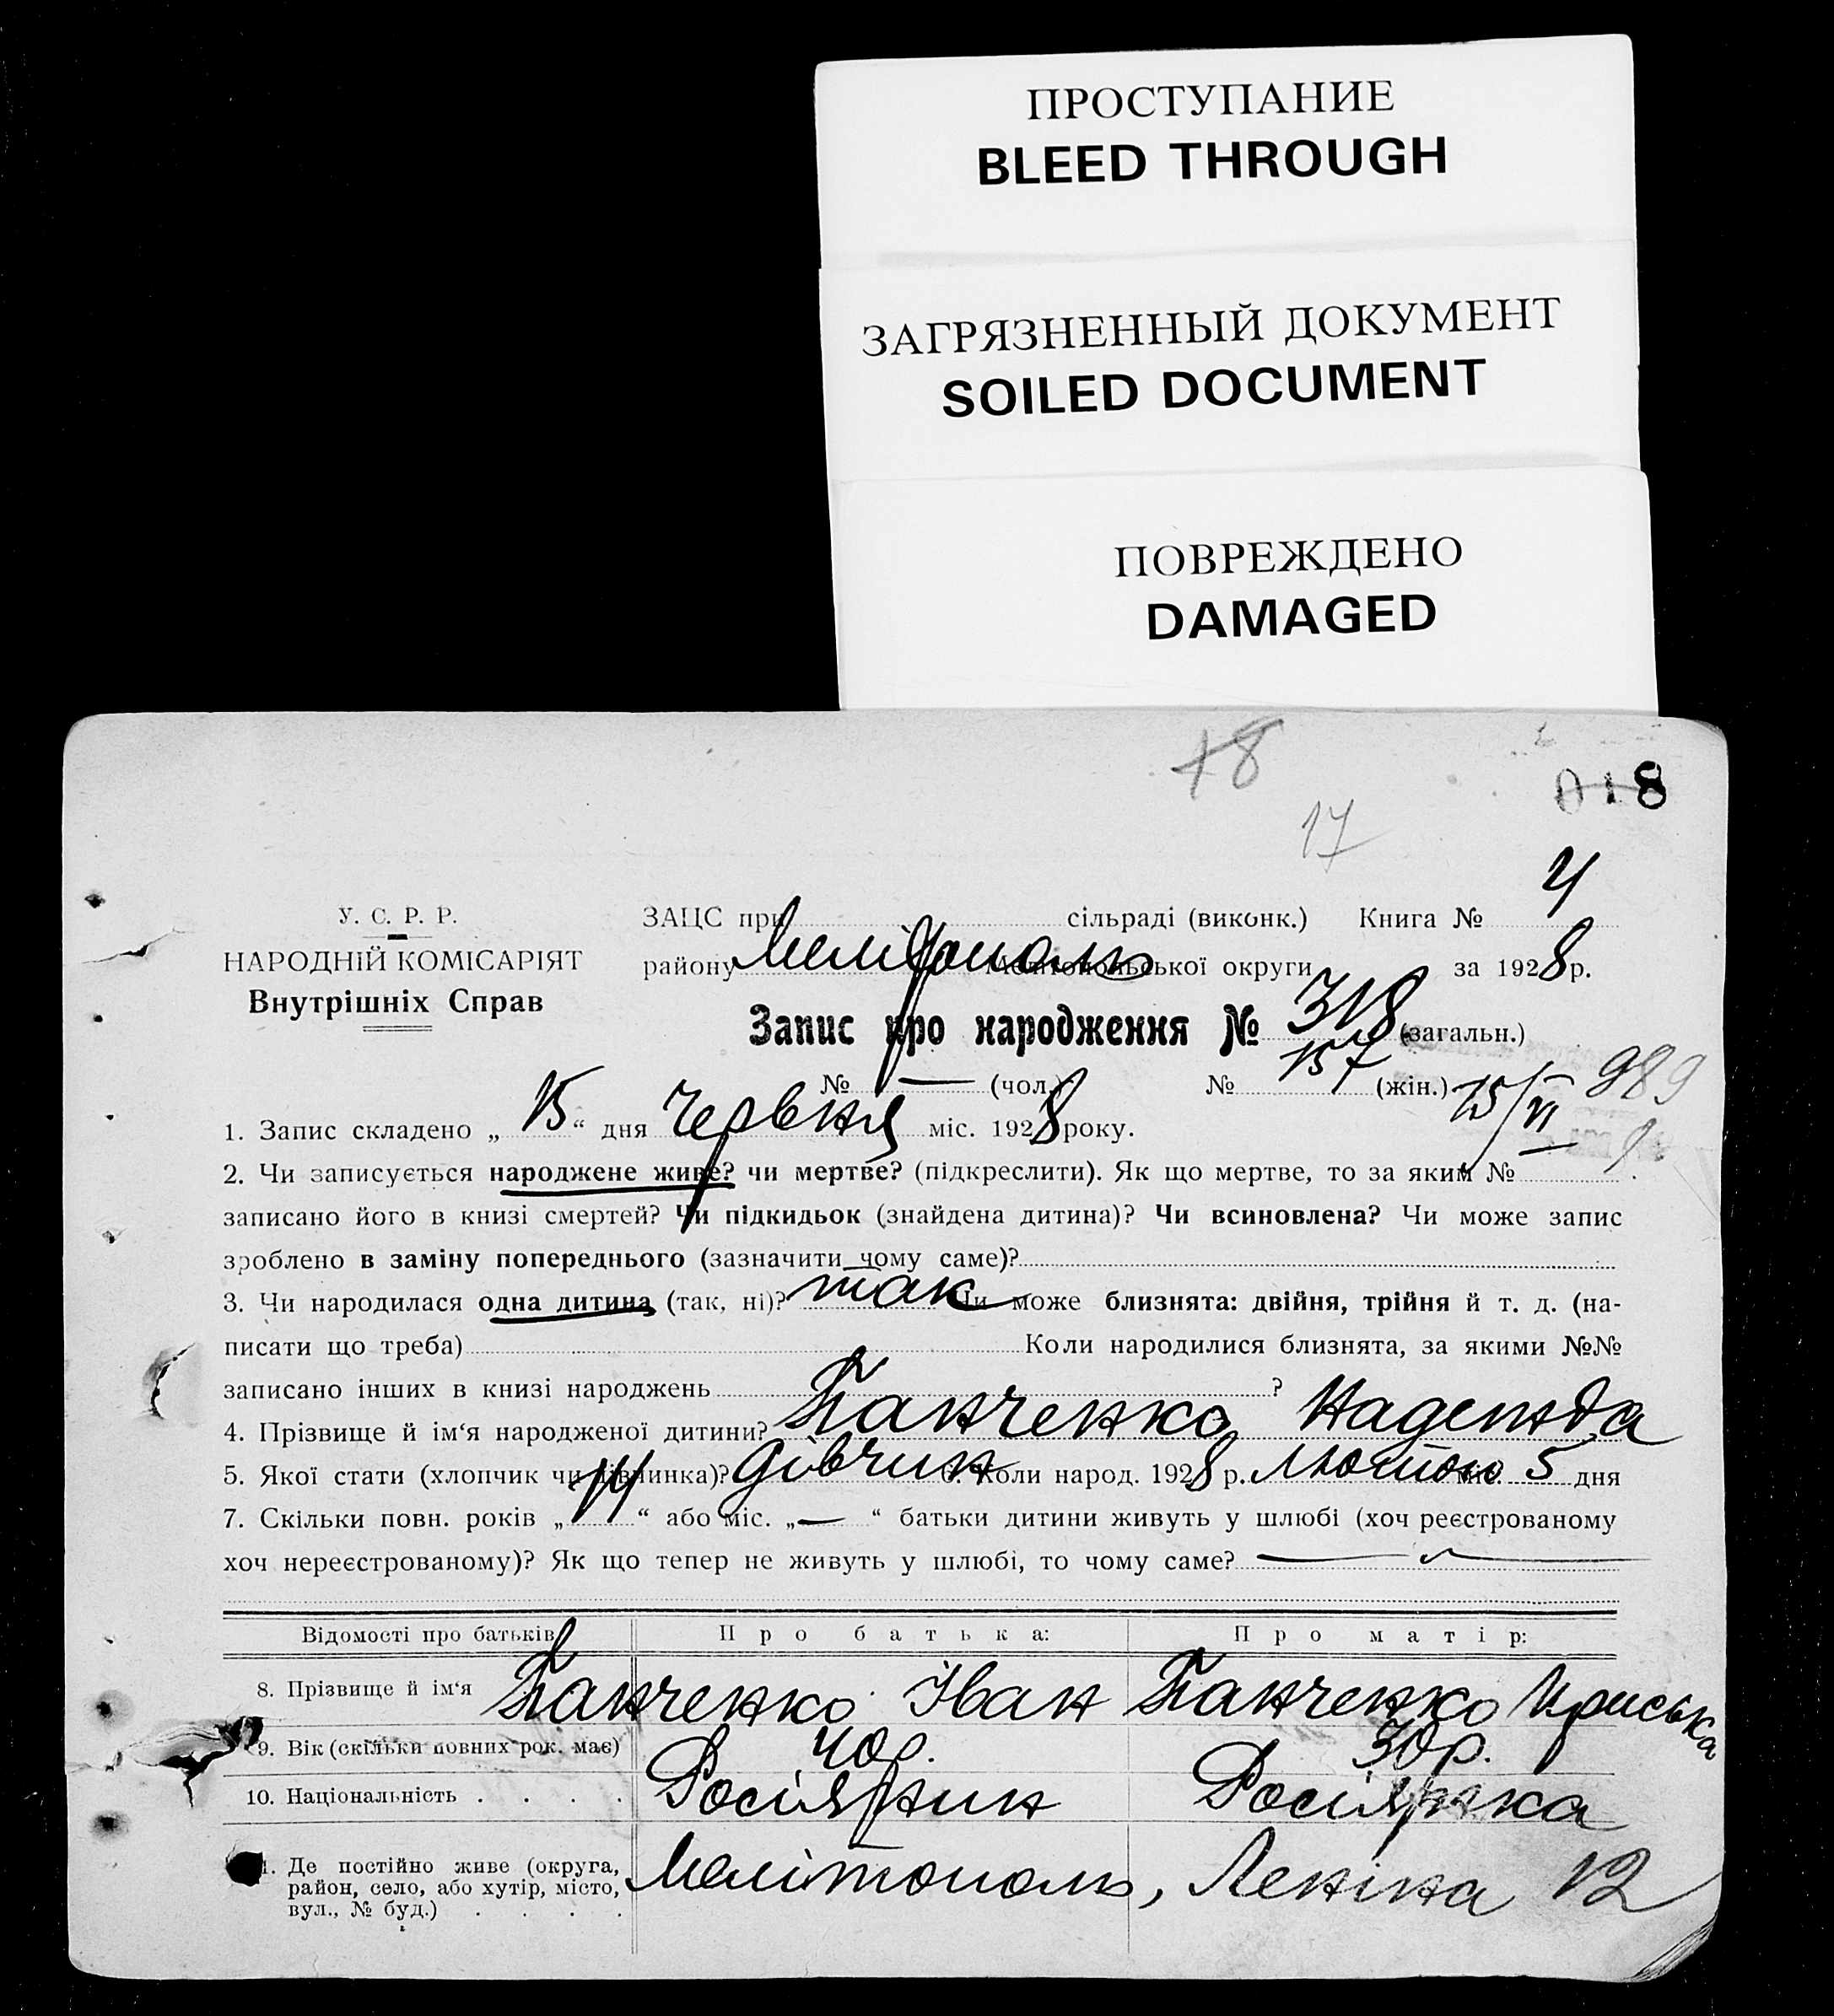 ПРОСТУПАНИЕ
BLEED THROUGH
ЗАГРЯЗНЕННЫЙ ДОКУМЕНТ
SOILED DOCUMENT
ПОВРЕЖДЕНО
DAMAGED
18
018
17
У. С. Р. Р.
НАРОДНІЙ КОМІСАРІЯТ
Внутрішніх Справ
ЗАЦС при сільраді (виконк.) Книга № 4
району Мелітополь Мелітопольської округи за 1928 р.
Запис про народження № 318 (загальн.)
№ — (чол.) № 157 (жін.) 15/VI 989
1. Запис складено „ 15 “ дня Червня міс. 1928 року.
2. Чи записується народжене живе? чи мертве? (підкреслити). Як що мертве, то за яким №
записано його в книзі смертей? Чи підкидьок (знайдена дитина)? Чи всиновлена? Чи може запис
зроблено в заміну попереднього (зазначити чому саме)?
3. Чи народилася одна дитина (так, ні)? так Чи може близнята: двійня, трійня й т. д. (на-
писати що треба) Коли народилися близнята, за якими №№
записано інших в книзі народжень ?
4. Прізвище й ім‘я народженої дитини? Панченко Надежда
5. Якої стати (хлопчик чи дівчинка)? дівчин 6. Коли народ. 1928 р. Лютого міс. 5 дня
7. Скільки повн. років „ 14 “ або міс. „ — “ батьки дитини живуть у шлюбі (хоч реєстрованому
хоч нереєстрованому)? Як що тепер не живуть у шлюбі, то чому саме? —
Відомості про батьків Про батька: Про матір:
8. Прізвище й ім‘я Панченко Іван Панченко Ириська
9. Вік (скільки повних рок. має) 40 р. 30 р.
10. Національність . . . . Росіянин Росіянка
11. Де постійно живе (округа,
район, село, або хутір, місто,
вул., № буд.) . . . .
Мелітополь, Леніна 12